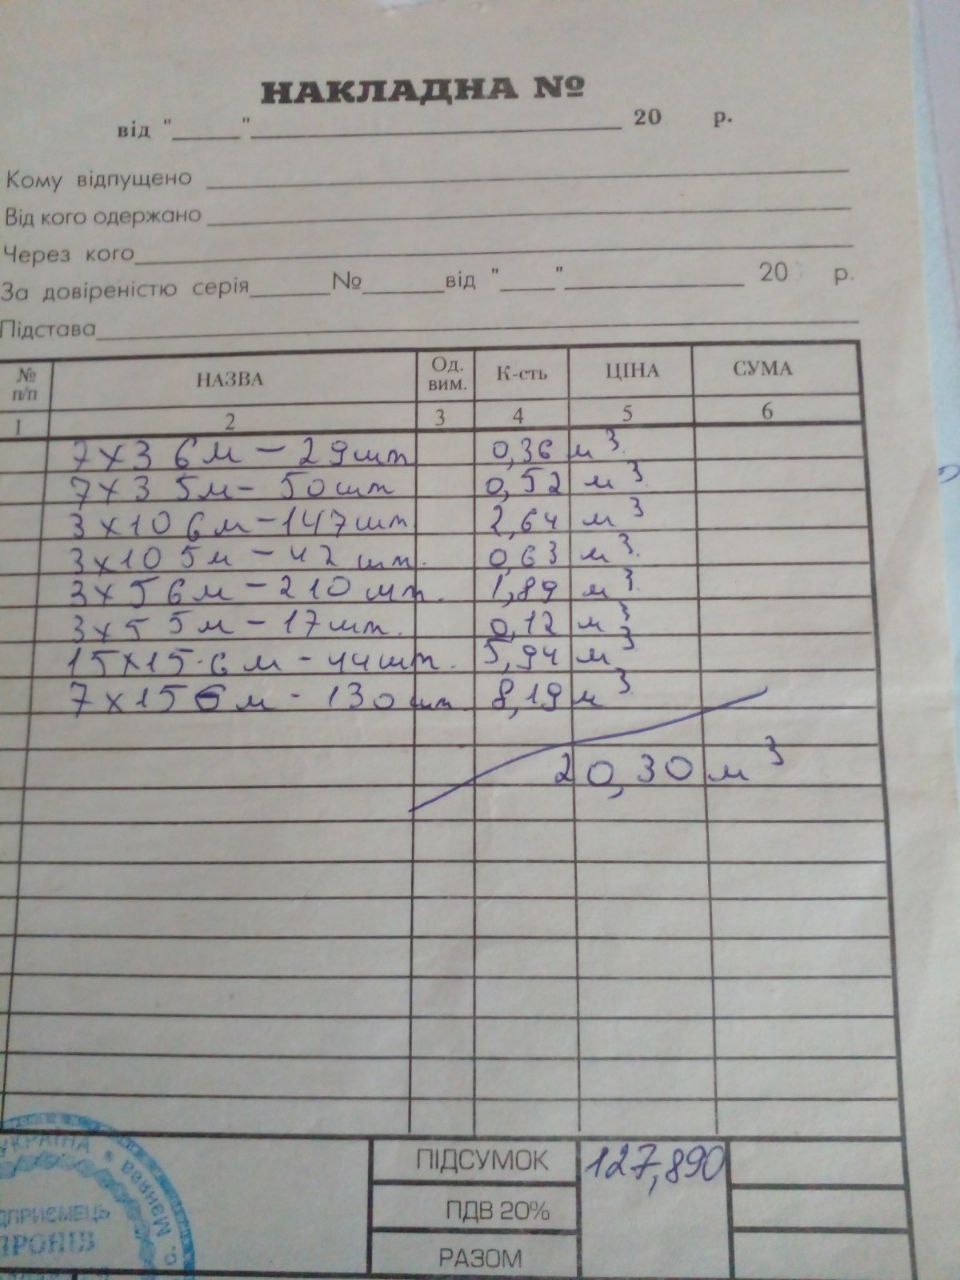 НАКЛАДНА №
від "____"____________ 20 р.
Кому відпущено
Від кого одержано
Через кого
За довіреністю серія______№______від "____"____________ 20 р.
Підстава
№ п/п НАЗВА Од. вим. К-сть ЦІНА СУМА
1 2 3 4 5 6
7х3 6м - 29шт 0,36 м³
7х3 5м - 50шт 0,52 м³
3х10 6м - 147шт 2,64 м³
3х10 5м - 42 шт. 0,63 м³
3х5 6м - 210 шт. 1,89 м³
3х5 5м - 17шт. 0,12 м³
15х15·6м - 44шт. 5,94 м³
7х15 6м - 130 шт. 8,19 м³
20,30 м³
ПІДСУМОК 127,890
ПДВ 20%
РАЗОМ
УКРАЇНА * с. Манява